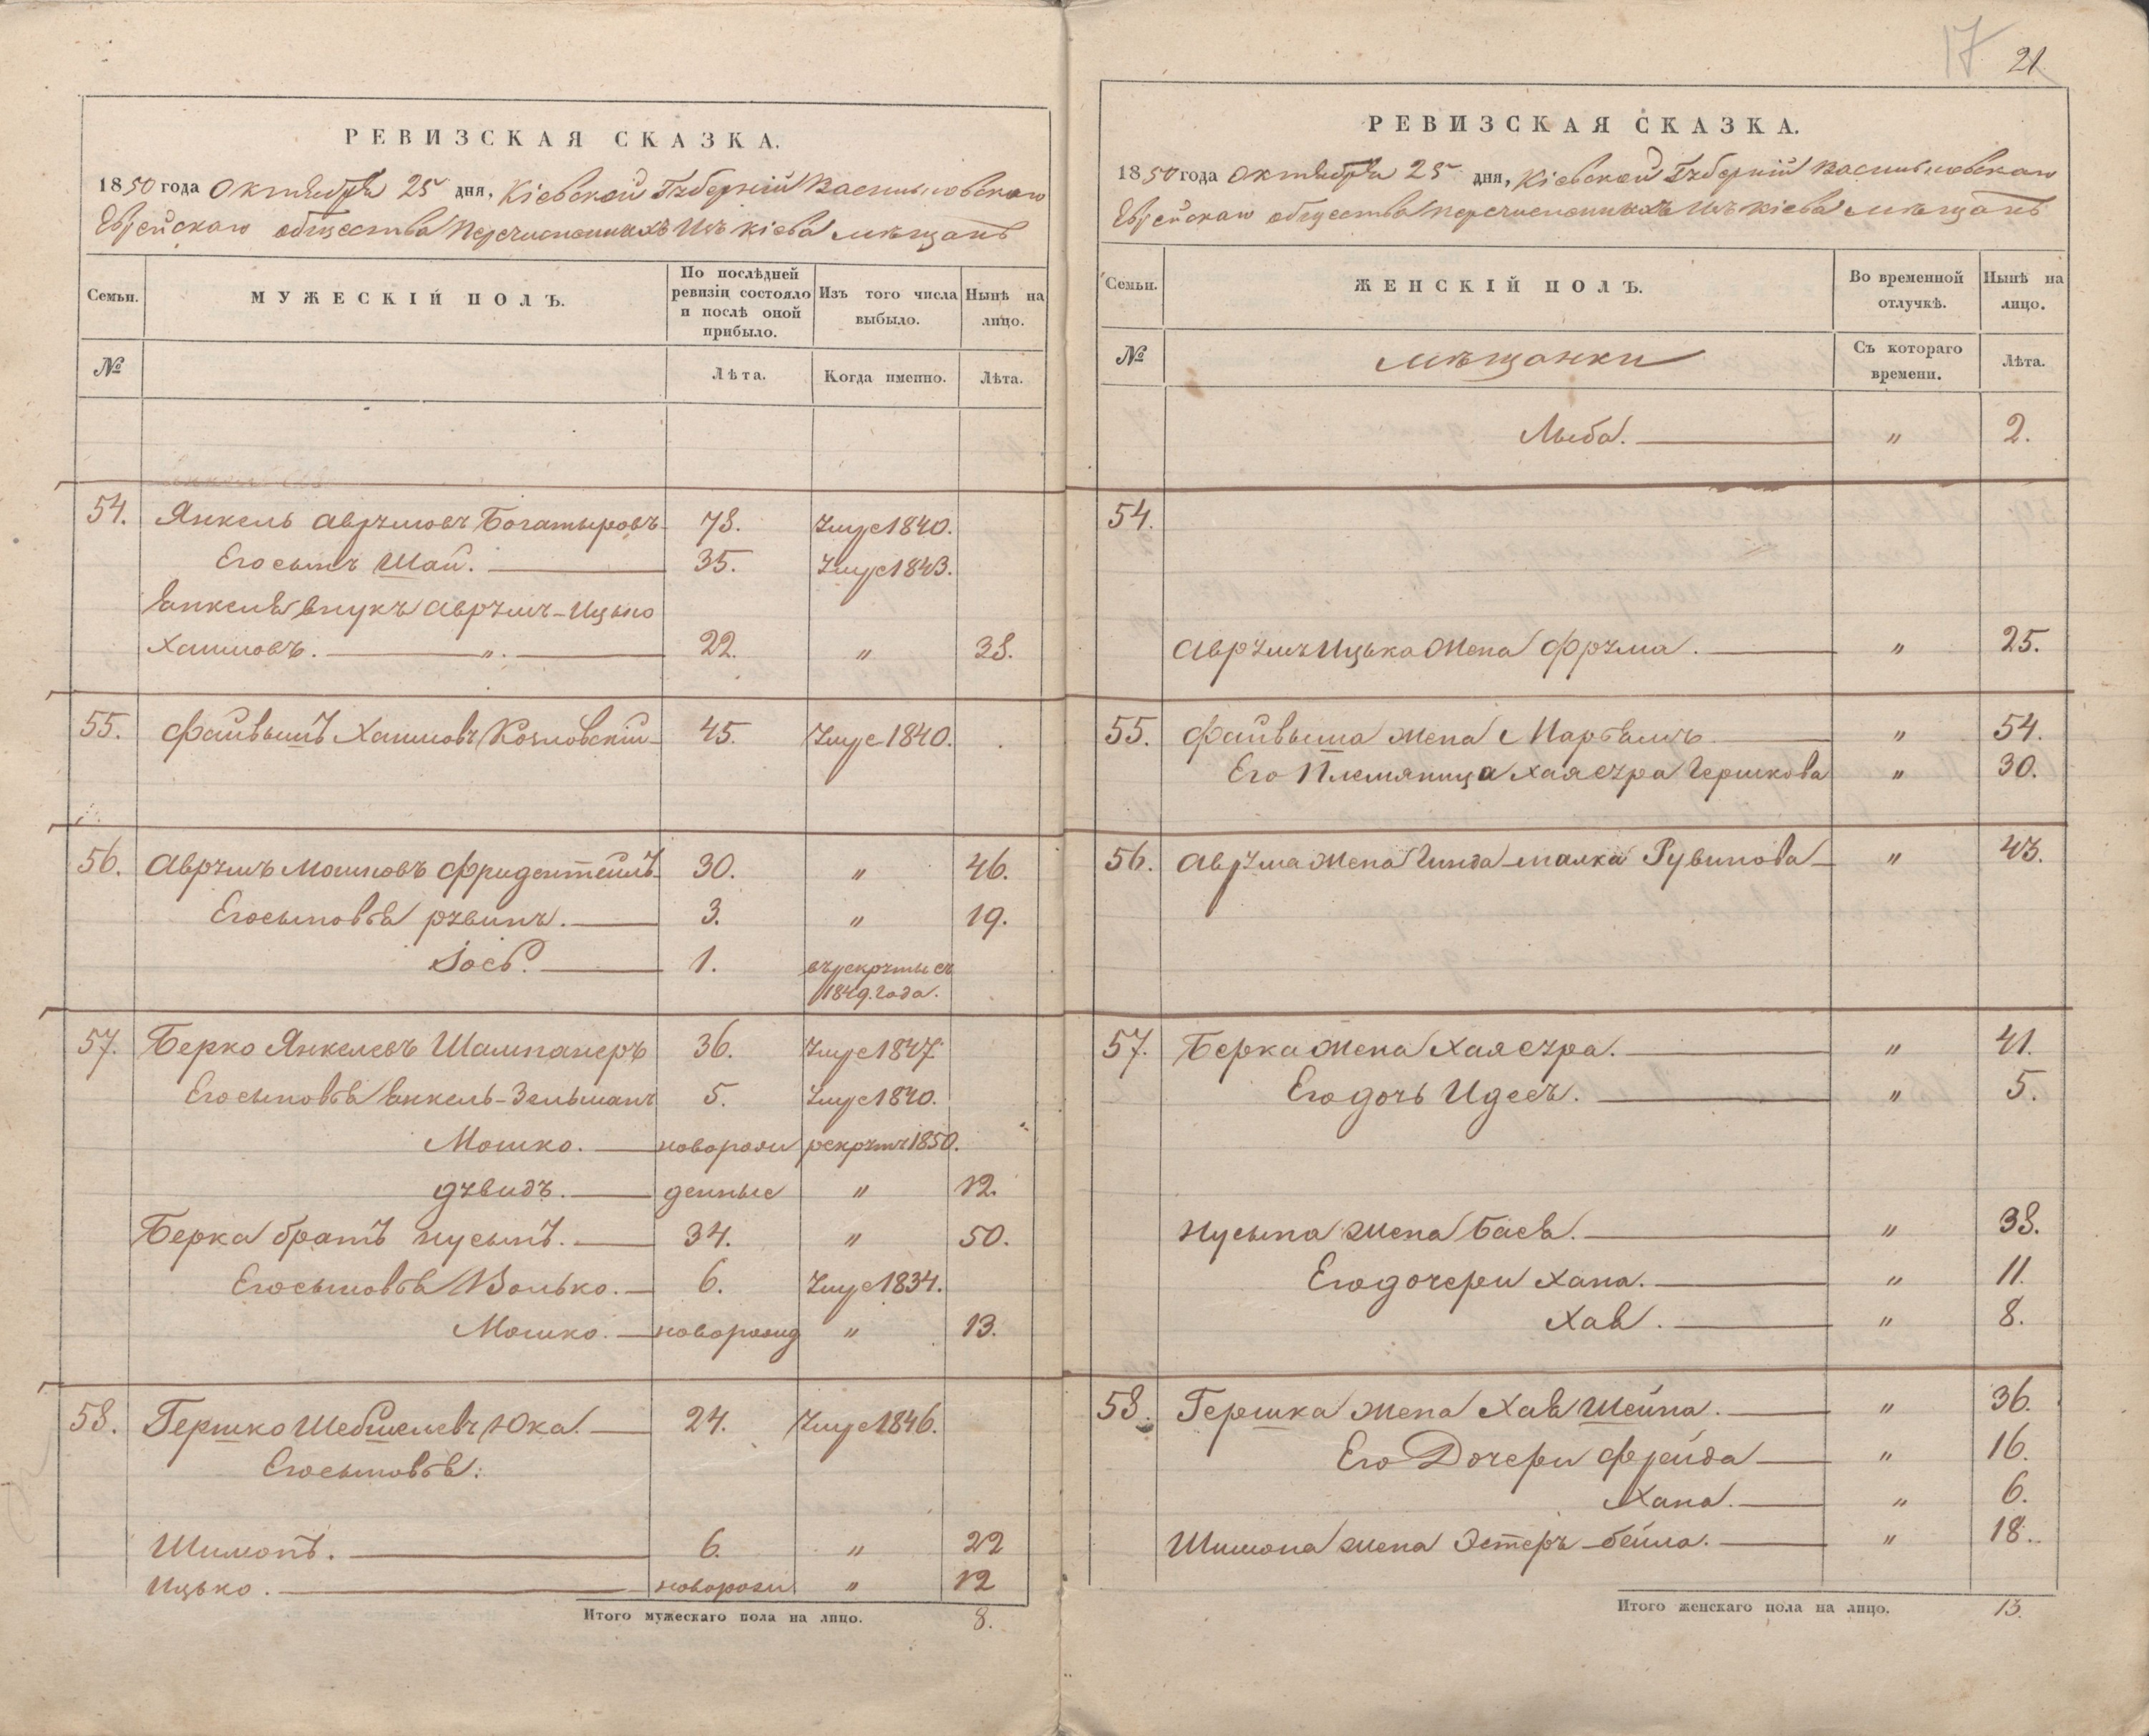 РЕВИЗСКАЯ СКАЗКА.
1850 года Октября 25 дня, Кіевской Губерніи Васильковскаго
Еврейскаго общества перечисленныхъ изъ Кіева мѣщанъ
Семьи.
МУЖЕСКІЙ ПОЛЪ.
По послѣдней ревизіи состояло и послѣ оной прибыло.
Изъ того числа выбыло.
Нынѣ на лицо.
№
Лѣта.
Когда именно.
Лѣта.
54. Янкель Аврумовъ Богатыровъ 78. Умре 1840.
Его сынъ Шай. 35. Умре 1843.
Янкеля внукъ Аврумъ-Ицько
Хаимовъ. „ 22. „ 38.
55. Файвышъ Хаимовъ Козловскій 45. Умре 1840.
56. Аврумъ Мошковъ Фридентейнъ 30. „ 46.
Его сыновья Рувинъ. 3. „ 19.
Іось. 1. въ рекруты съ
1849. года.
57. Берко Янкелевъ Шампанеръ 36. Умре 1847.
Его сыновья Янкель-Зельманъ 5. Умре 1840.
Мошко. новорож рекрутъ 1850.
Дувидъ. денные „ 12.
Берка братъ Нусынъ. 34. „ 50.
Его сыновья Волько. 6. Умре 1834.
Мошко. новорожд „ 13.
58. Гершко Шебшелевъ Юка. 24. Умре 1846.
Его сыновья:
Шимонъ. 6. „ 22
Ицько. новорож „ 12
Итого мужескаго пола на лицо. 8.
17 21
РЕВИЗСКАЯ СКАЗКА.
1850 года Октября 25 дня, Кіевской Губерніи Васильковскаго
Еврейскаго общества перечисленныхъ изъ Кіева мѣщанъ
Семьи.
ЖЕНСКІЙ ПОЛЪ.
Во временной отлучкѣ.
Нынѣ на лицо.
№
Мѣщанки
Съ котораго времени.
Лѣта.
Лыба. „ 2.
54.
Аврумъ Ицька жена Фрума. „ 25.
55. Файвыша жена Марьямъ „ 54.
Его племяница Хая Сура Гершкова „ 30.
56. Аврума жена Гинда-Малка Рувинова „ 43.
57. Берка жена Хая Сура. „ 41.
Его дочь Идесъ. „ 5.
Нусына жена Бася. „ 38.
Его дочери Хана. „ 11.
Хая. „ 8.
58. Гершка жена Хая Шейна. „ 36.
Его Дочери Фрейда „ 16.
Хана. „ 6.
Шимона жена Эстеръ-бейла. „ 18.
Итого женскаго пола на лицо. 13.